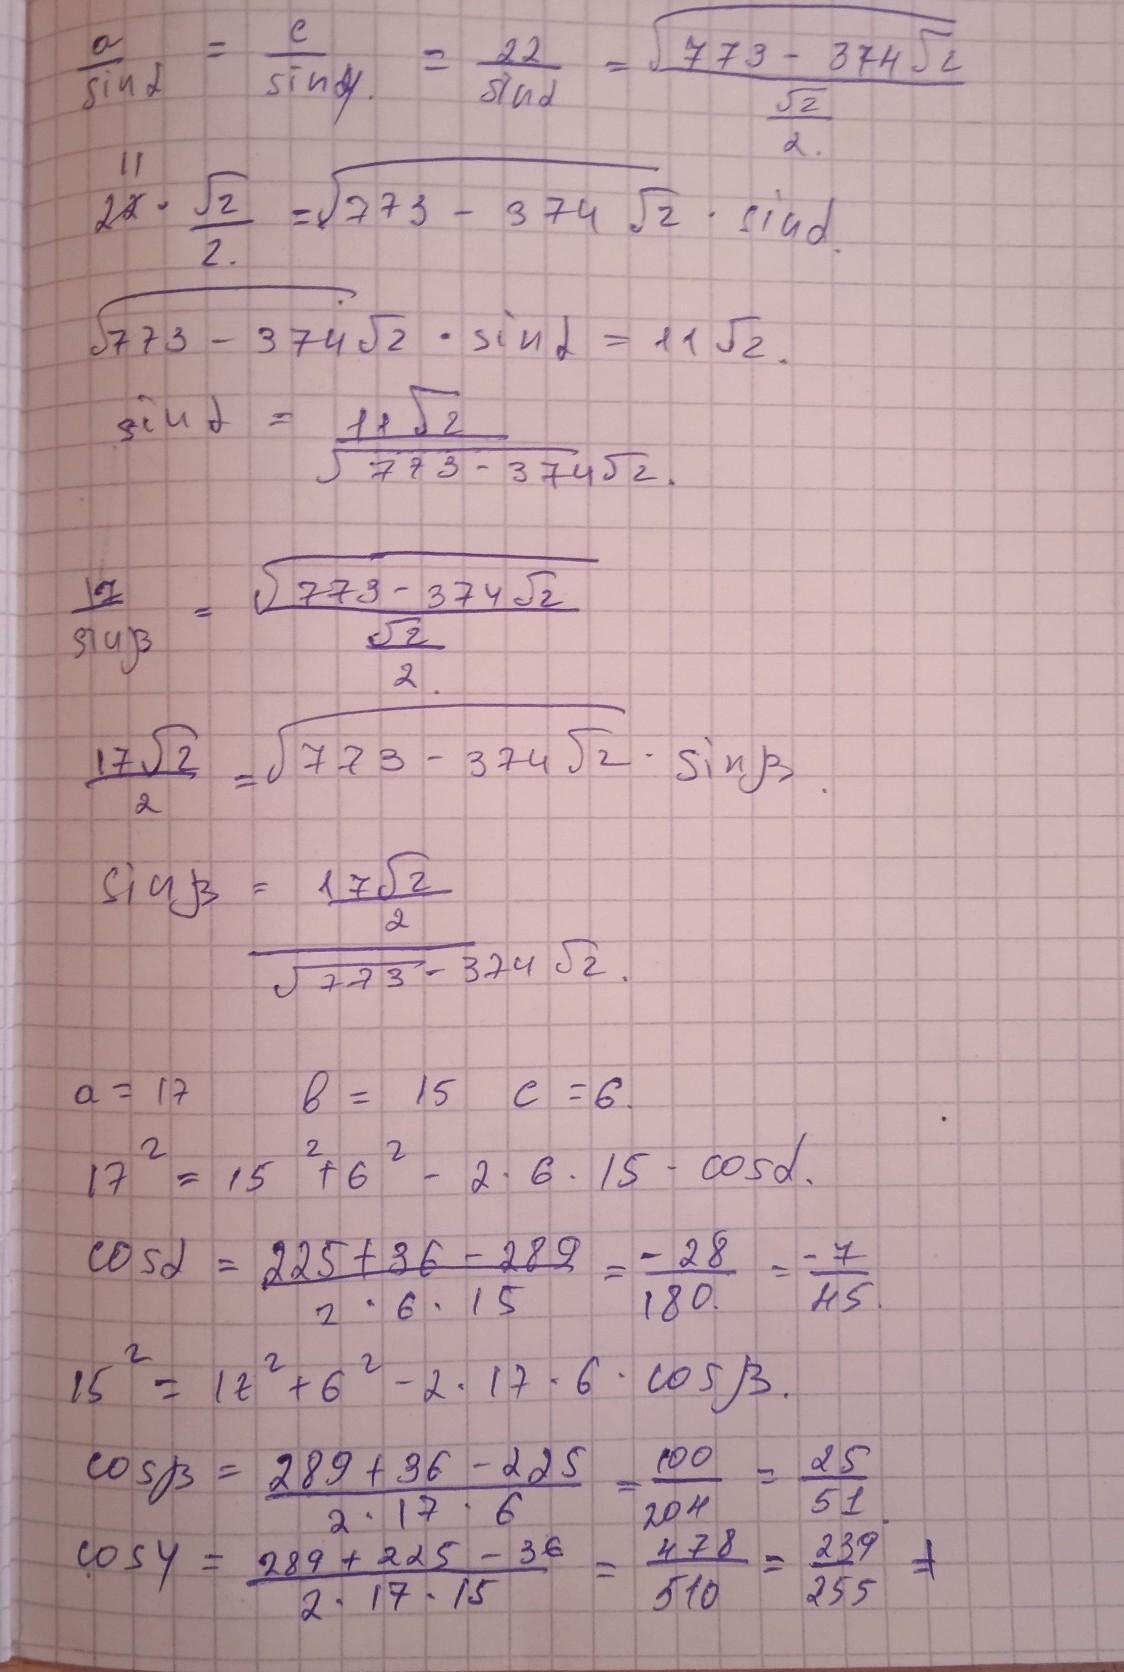 a/sinα = c/sinγ. = 22/sinα = √(773 - 374√2) / (√2/2).
11
22 · √2/2. = √(773 - 374√2) · sinα.
√(773 - 374√2) · sinα = 11√2.
sinα = 11√2 / √(773 - 374√2).
17/sinβ = √(773 - 374√2) / (√2/2).
17√2/2 = √(773 - 374√2) · sinβ.
sinβ = (17√2/2) / √(773 - 374√2).
a = 17 b = 15 c = 6.
17² = 15² + 6² - 2 · 6 · 15 · cosα.
cosα = (225 + 36 - 289)/(2 · 6 · 15) = -28/180. = -7/45.
15² = 17² + 6² - 2 · 17 · 6 · cosβ.
cosβ = (289 + 36 - 225)/(2 · 17 · 6) = 100/204 = 25/51.
cosγ = (289 + 225 - 36)/(2 · 17 · 15) = 478/510 = 239/255